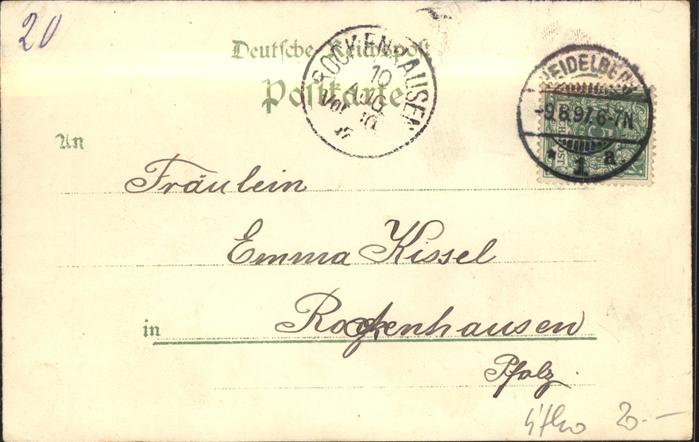 20
Deutsche Reichspost
Postkarte
ROCKENHAUSEN
10
AUG
HEIDELBERG
-9.8.97.6-7N.
* 1 a
An
Fräulein
Emma Kissel
in Rockenhausen
Pfalz.
20.-